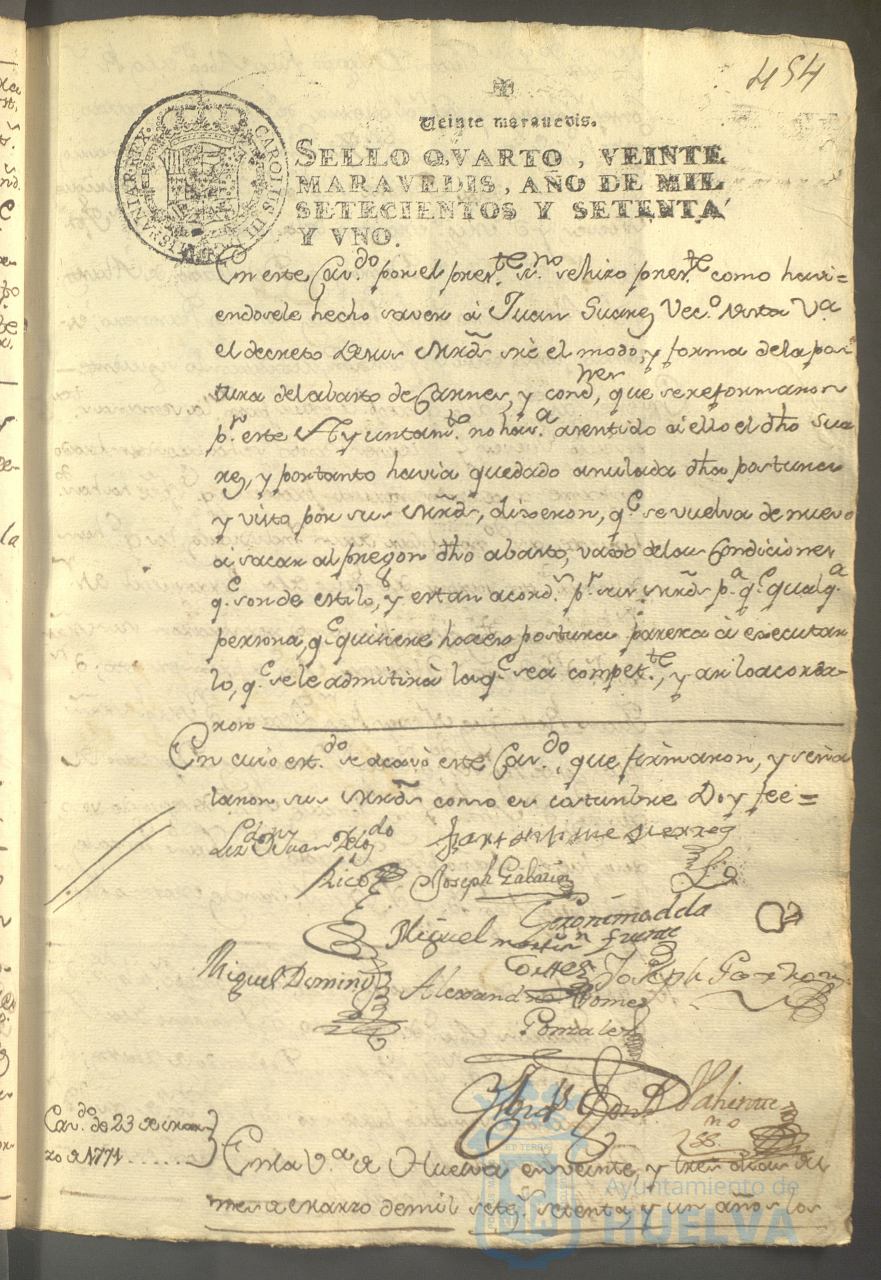 454
Veinte maravedis.
SELLO QVARTO, VEINTE
MARAVEDIS, AÑO DE MIL
SETECIENTOS Y SETENTA
Y VNO.
CAROLUS III
HISPANIAR. REX.
En este Cav.do por el pres.te ss.no se hizo pres.te como havi=
endosele hecho saver à Juan Suarez Vec.o desta V.a
el decreto de sus Mrds sre el modo, y forma de la pos
tura del abasto de Carnes, y condnes, que se reformaron
p.r este Ayuntam.to no hav.a asentido à ello el dho Sua
rez, y portanto havia quedado anulada dha postura
y visto por sus Mrds, dixeron, q.e se vuelva de nuevo
à sacar al pregon dho abasto, vaxo de las Condiciones
q.e son de estilo, y estan acord.s p.r sus Mrds p.a q.e qualq.a
persona, q.e quisiere hacer postura paresca à executar
lo, q.e se le admitirà la q.e sea compet.te, y asi lo acorda-
ron
En cuio est.do se acavò este Cav.do, que firmaron, y seña
laron sus Mrds como es costumbre Doy fee=
Liz.do Dn Juan
Rico Joseph
Miguel Martin
Geronimo de la
Fuente
Torres
Miguel Doming
Alexandro Gomez
Gonzalez
Joseph
Cav.do de 23 de Mar
zo de 1771
En la V.a de Huelva en veinte, y tres dias del
mes de Marzo de mil sete.s setenta y un años los
Ayuntamiento de
HUELVA